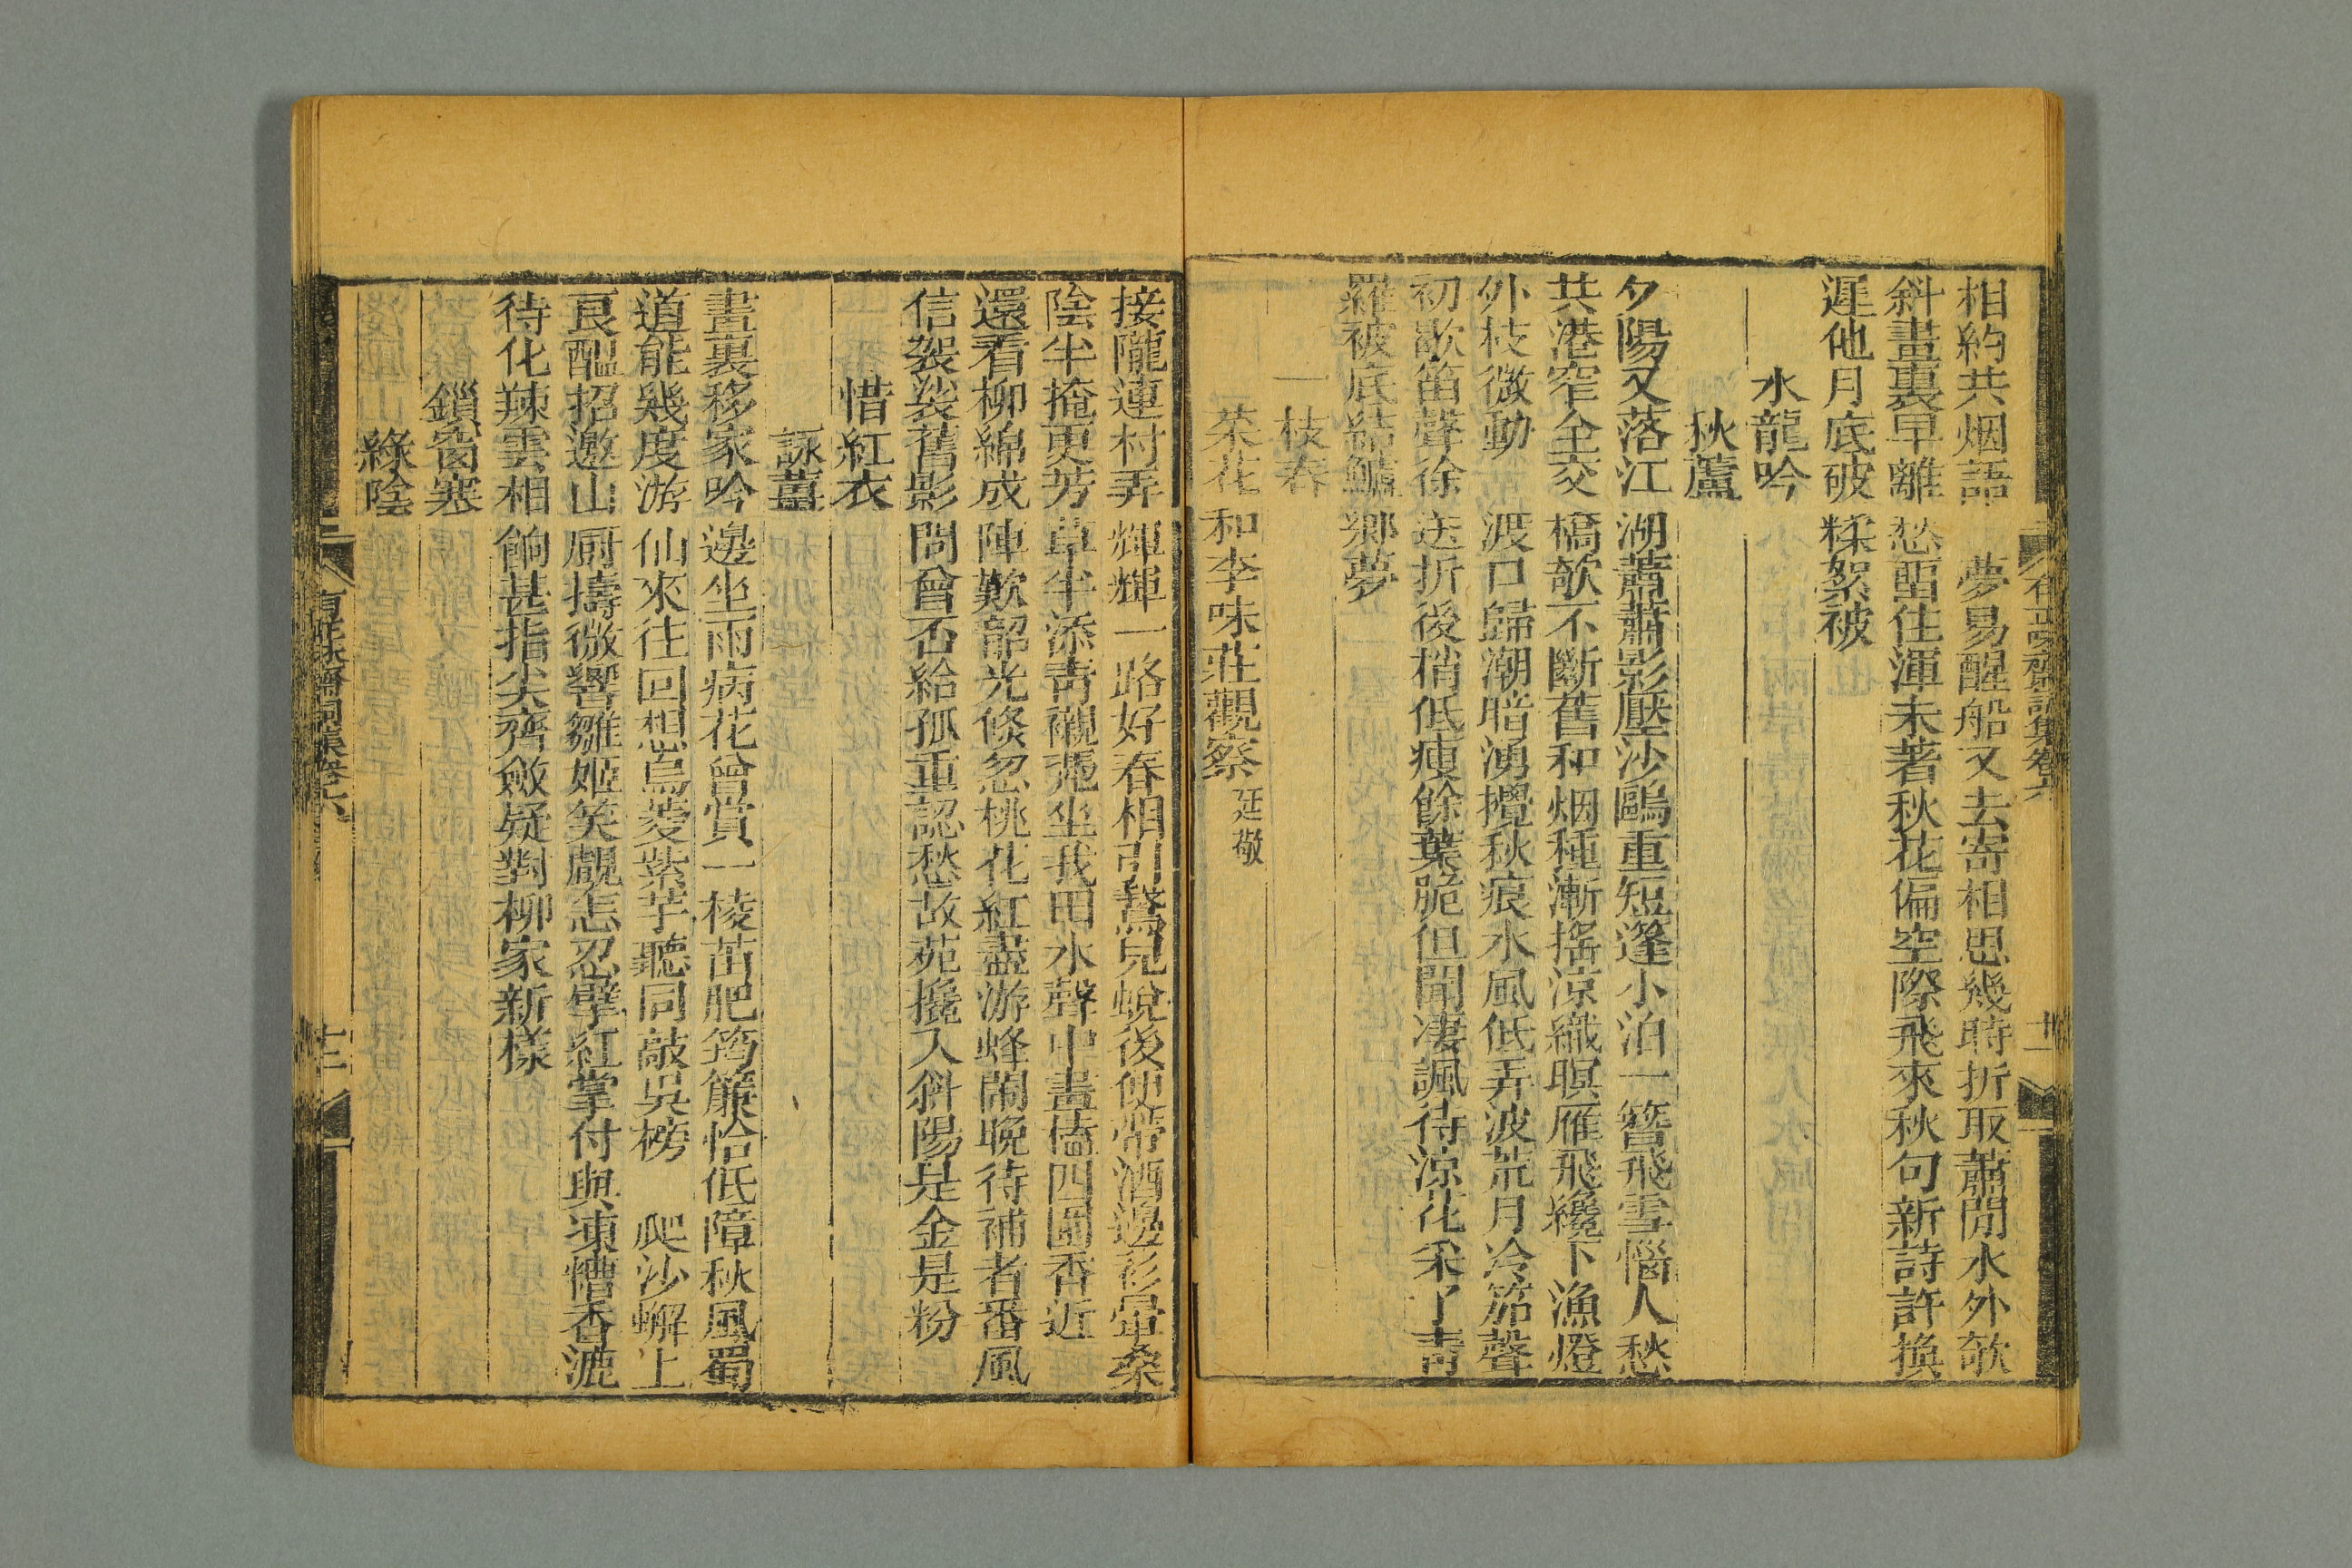 相約共烟語　夢易醒船又去寄相思幾時折取蕭閒水外欹
斜畫裏早離愁西住渾未著秋花偏空際飛來秋句新詩許換
遲他月底破糅絮被
水龍吟
秋蘆
夕陽又落江湖蕭蕭影壓沙鷗重短篷小泊一簪飛雪惱人愁
共港窄全交橋欹不斷舊和烟種漸搖涼織暝雁飛纔下漁燈
外枝微動　渡口歸潮暗湧攪秋痕水風低弄波荒月冷笳聲
初歇笛聲徐送折後梢低瘦餘葉脆但聞淒諷待涼花采了青
羅被底結鱸鄉夢
一枝春
菜花和李味莊觀察廷敬
接隴連村弄輝輝一路好春相引鵞兒蛻後使帶酒邊衫暈桑
陰半掩更芳草半添青襯蔥坐我田水聲中畫值四圍香近
還看柳綿成陣歎韶光倏忽桃花紅盡游蜂鬧晚待補者番風
信袈裟舊影問曾否給孤重認愁故苑攙入斜陽是金是粉
惜紅衣
詠薑
畫裏移家吟邊坐雨病花曾賞一棱苗肥筠簾恰低障秋風蜀
道能幾度游仙來往回想烏菱紫芋聽同敲吳榜　爬沙蠏上
艮醖招邀山厨擣微響雛姬笑覷怎忍擘紅掌付與凍糟香漉
待化辣雲相餉甚指尖齊斂疑對柳家新樣
鎖窗寒
綠陰
有正味齋詞集卷六
十二